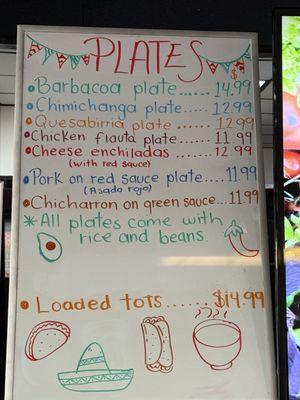 PLATES
$
•Barbacoa plate...... 14.99
•Chimichanga plate..... 12.99
•Quesabirria plate ...... 12.99
•Chicken flauta plate..... 11.99
•Cheese enchiladas ........ 12.99
(with red sauce)
•Pork on red sauce plate.... 11.99
(Asado rojo)
•Chicharron on green sauce... 11.99
*All plates come with
rice and beans.
•Loaded tots ....... $14.99